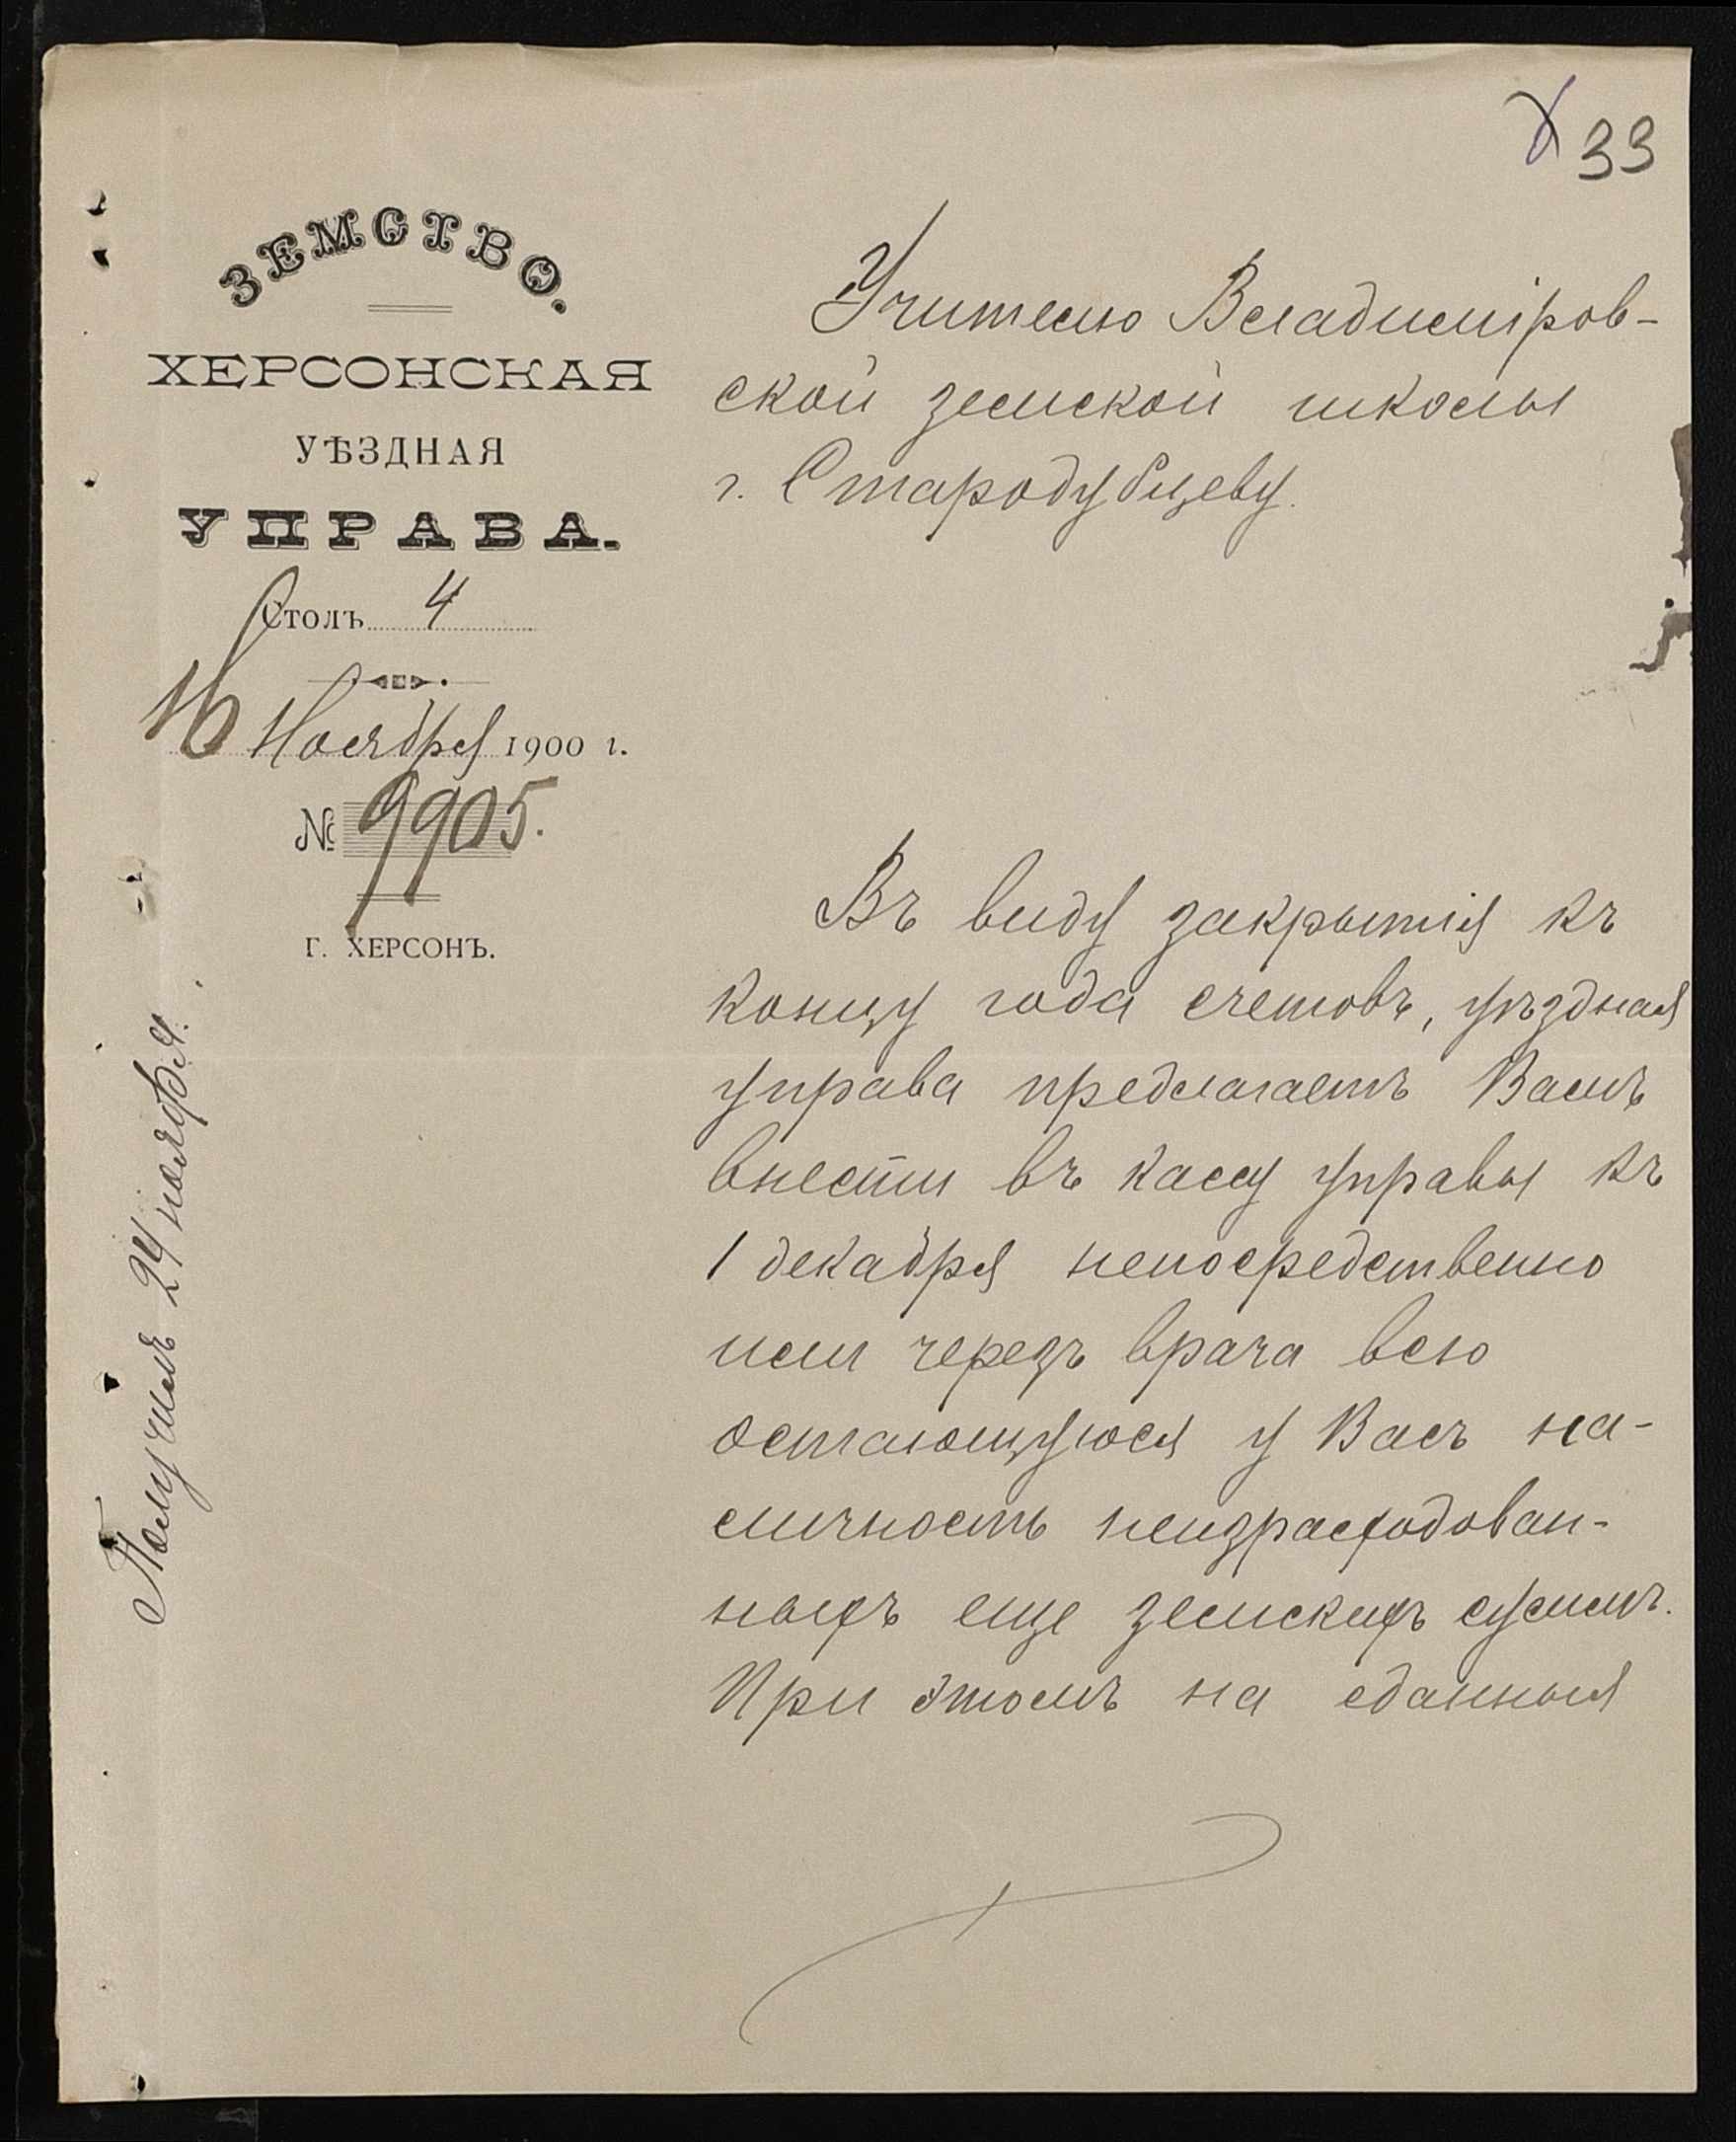 33
ЗЕМСТВО.
ХЕРСОНСКАЯ
УѢЗДНАЯ
УПРАВА.
Столъ 4
16 Ноября 1900 г.
№ 9905.
Г. ХЕРСОНЪ.
Получилъ 24 ноября.
Учителю Владимiров-
ской земской школы
г. Стародубцеву.
Въ виду закрытiя къ
концу года счетовъ, уѣздная
управа предлагаетъ Вамъ
внести въ кассу управы къ
1 декабря непосредственно
или черезъ врача всю
остающуюся у Васъ на-
личность неизрасходован-
ныхъ еще земскихъ суммъ.
При этомъ на сданныя